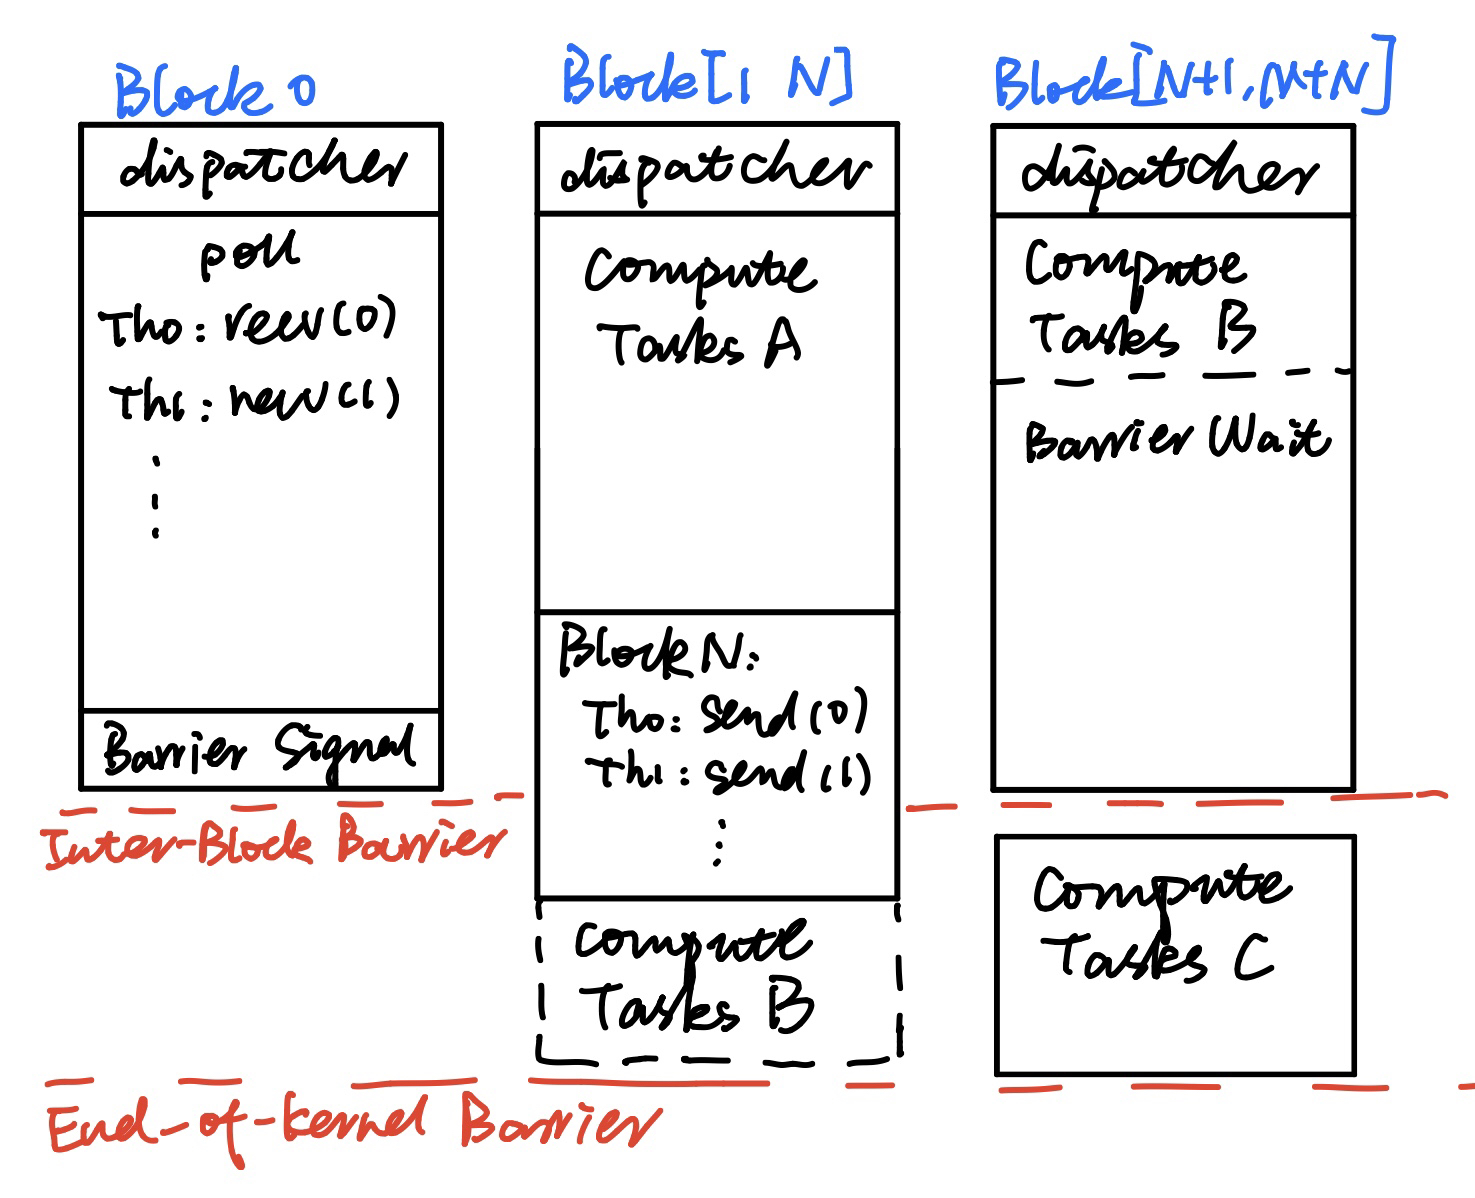 Block 0
dispatcher
poll
Th0: recv(0)
Th1: recv(1)
Barrier Signal
Inter-Block Barrier
Block[1 N]
dispatcher
Compute
Tasks A
Block N:
Th0: send(0)
Th1: send(1)
Compute
Tasks B
Block[N+1,M+N]
dispatcher
Compute
Tasks B
Barrier Wait
Compute
Tasks C
End-of-kernel Barrier